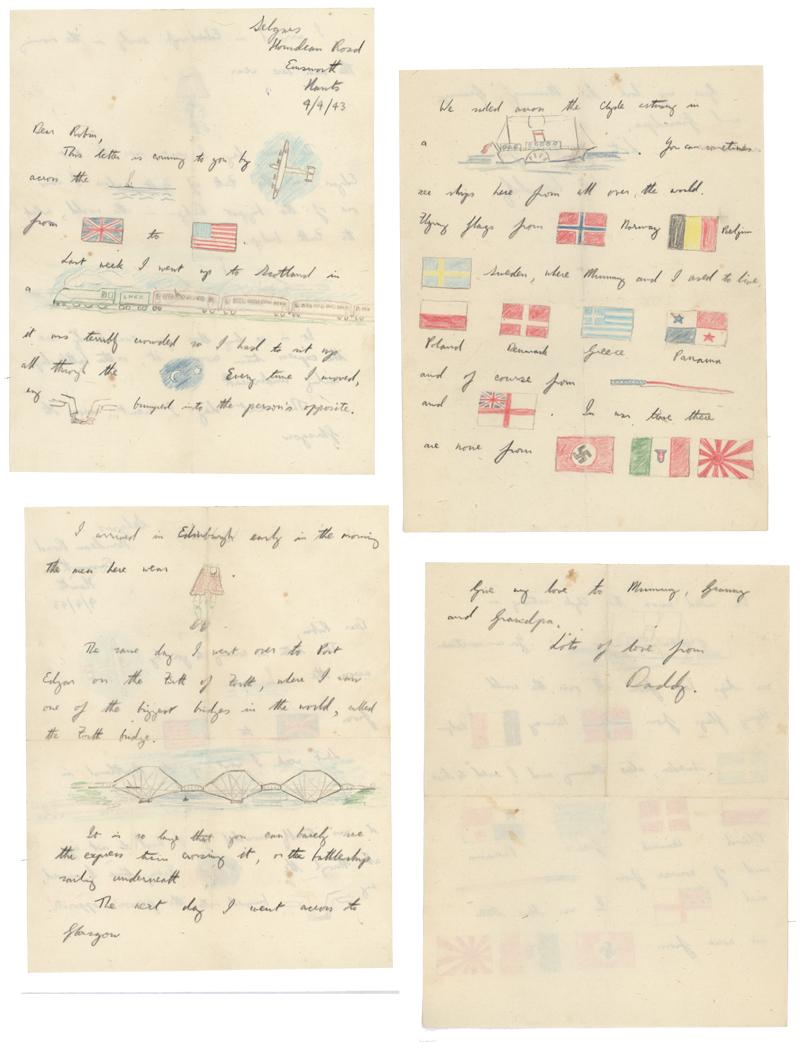 Selgrès
Horndean Road
Emsworth
Hants
9/4/43
Dear Robin,
This letter is coming to you by
across the
from to .
Last week I went up to Scotland in
a LNER
it was terribly crowded so I had to sit up
all through the Every time I moved,
my bumped into the person's opposite.
I arrived in Edinburgh early in the morning
the men here wear .
The same day I went over to Port
Edgar on the Firth of Forth, where I saw
one of the biggest bridges in the world, called
the Forth bridge.
It is so large that you can barely see
the express train crossing it, or the battleships
sailing underneath
The next day I went across to
Glasgow
We sailed across the Clyde estuary in
a . You can sometimes
see ships here from all over, the world.
Flying flags from Norway Belgium
Sweden, where Mummy and I used to live,
Poland Denmark Greece Panama
and of course from
and . In war time there
are none from
Give my love to Mummy, Granny
and Grandpa.
Lots of love from
Daddy.